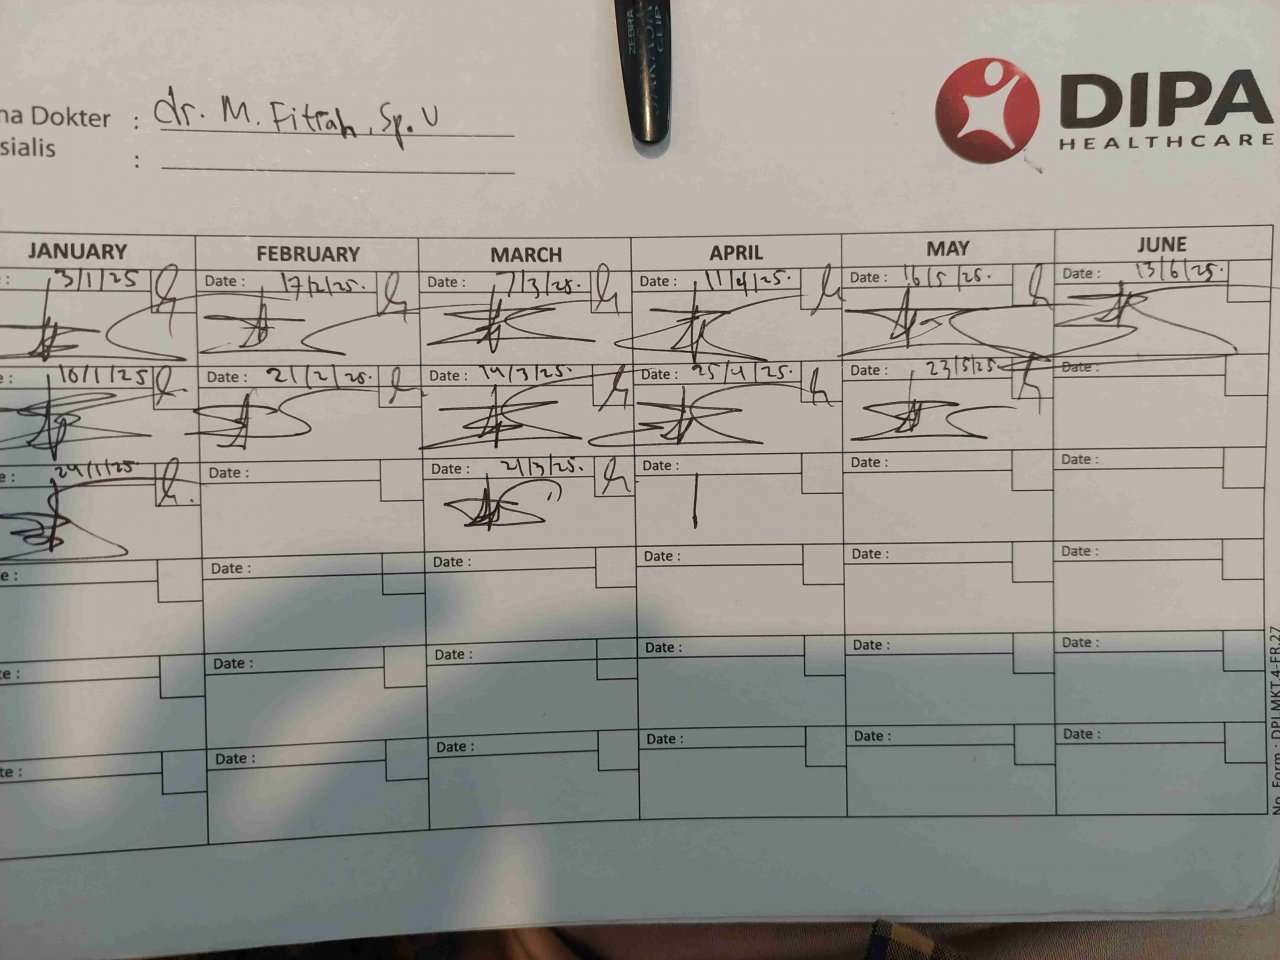 ZEBRA
SARASA
CLIP
na Dokter : dr. M. Fitrah, Sp. U
sialis :
DIPA
HEALTHCARE
JANUARY FEBRUARY MARCH APRIL MAY JUNE
e : 3/1/25 Date : 17/2/25. Date : 7/3/25. Date : 11/4/25. Date : 16/5/25. Date : 13/6/25.
e : 10/1/25 Date : 21/2/25. Date : 14/3/25. Date : 25/4/25. Date : 23/5/25 Date :
e : 24/1/25 Date : Date : 21/3/25. Date : Date : Date :
e : Date : Date : Date : Date : Date :
te : Date : Date : Date : Date : Date :
te : Date : Date : Date : Date : Date :
No. Form : DPI.MKT.4-FR.27